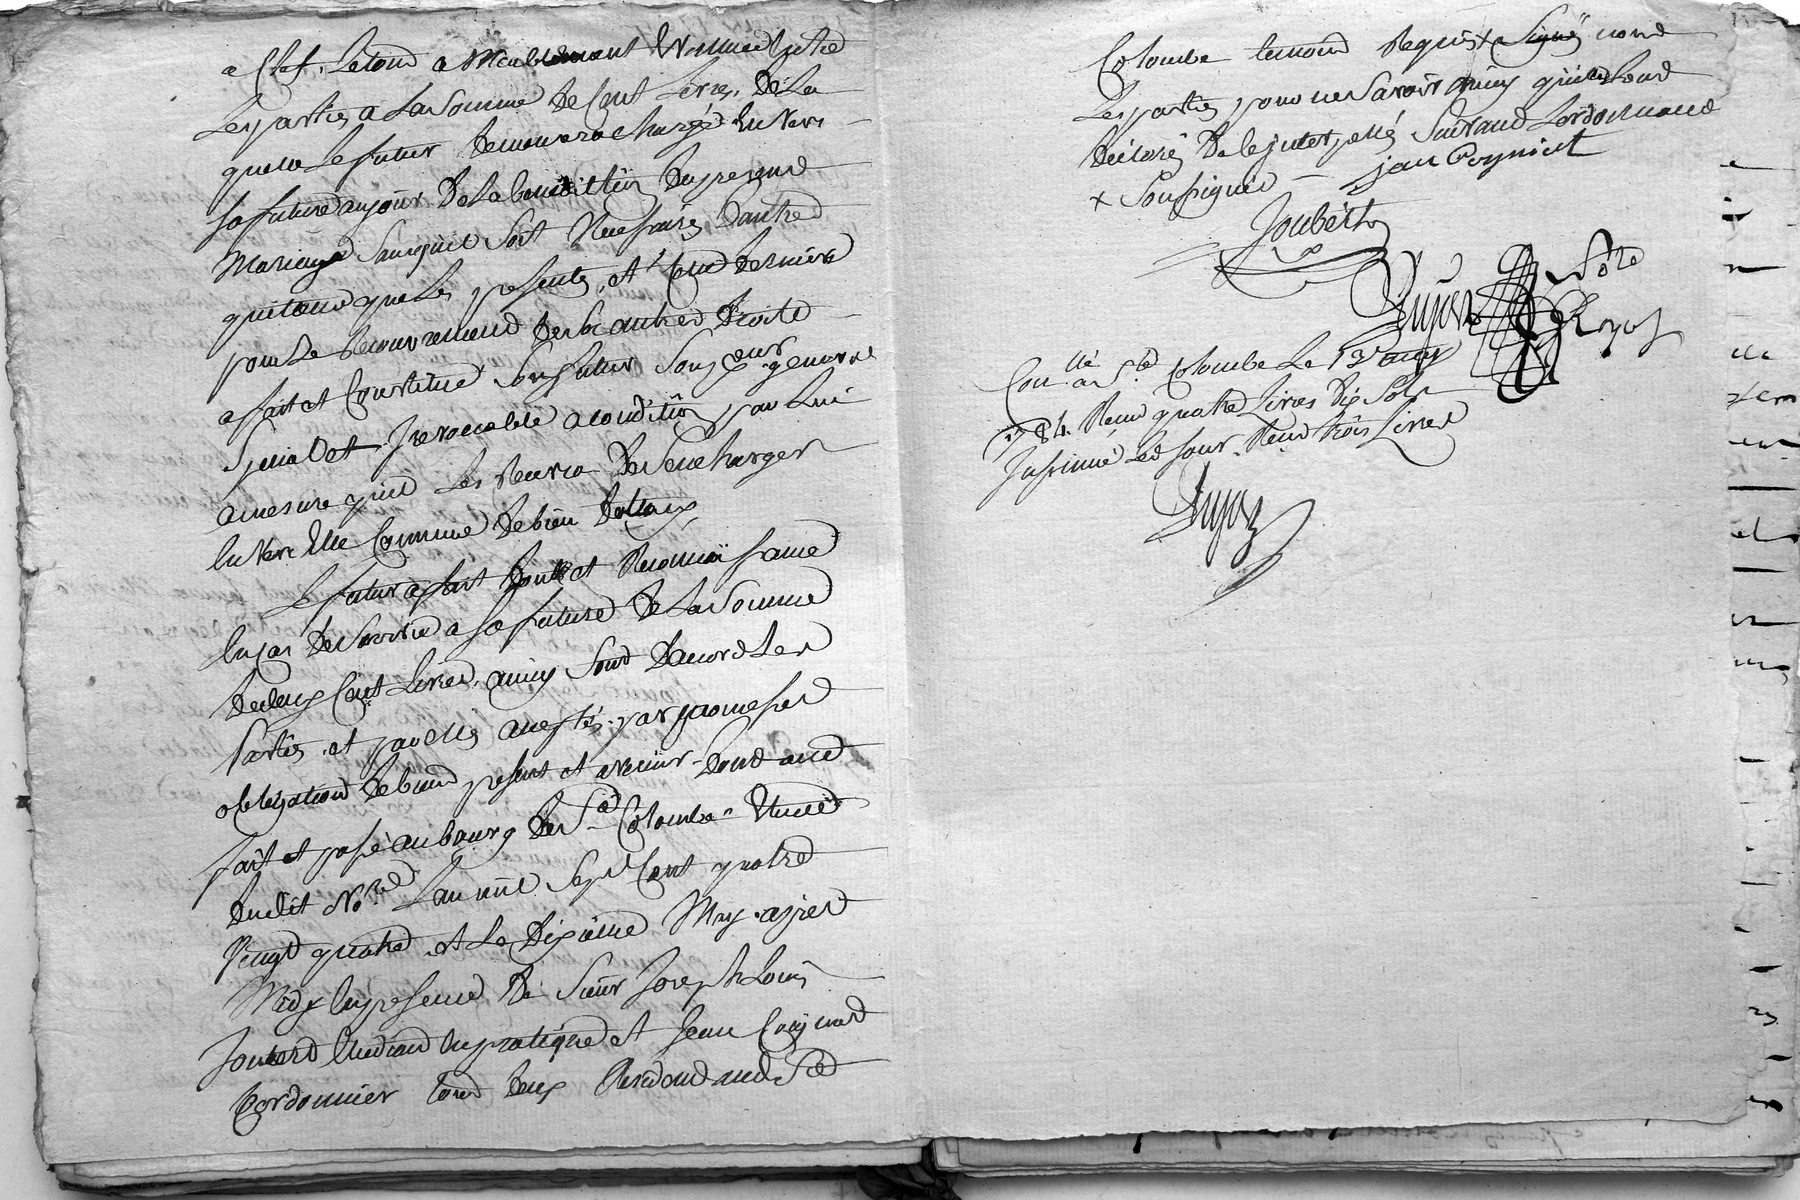 a Clef, Letout a Meublement Estimée Entre
Les parties a La Somme De Cent Livres, De La
quelle Le futur Demeurera chargé Envers
Sa future au jour De La benediction Du present
Mariage Sans quil Soit Necessaire Dautre
quitance que Les presentes, et Cette Derniere
pour Le Recouvrement De Ses autres Droits
a fait et Constitué Son futur Son p.eur general
Special et Irrevocable a condition par Lui
a mesure quil Les Recevra De Sen charger
En Vers Elle Comme De bien Dotaux
Le futur a fait Donet et
De Survie a Sa future De La Somme
De deux Cent Livres, ainsy Sont Dacord Les
Parties et par elles par promesses
obligation De biens present et avenir Dont acte
fait et passé au bourg De Ste Colombe Etude
Du dit No.re Lan mil Sept Cent quatre
Vingt quatre et Le Dixieme May apres
Midy En presence De Sieur Joseph Louis
Joubert Etudiant En pratique et Jean Coignet
Cordonnier tous Deux Residents audit Ste
Colombe temoins Requis x Signé non
Les parties pour ne Savoir ainsy quils ont
Declaré De Ce Interpellés Suivant Lordonnance
x Soussignés — jean Coyniet
Joubert
Dujast No.re Royal
Con.llé a S.te Colombe Le 13 may
1784. Reçu quatre Livres Dix Sols
Insinué Led. jour. Reçu trois Livres
Dujast